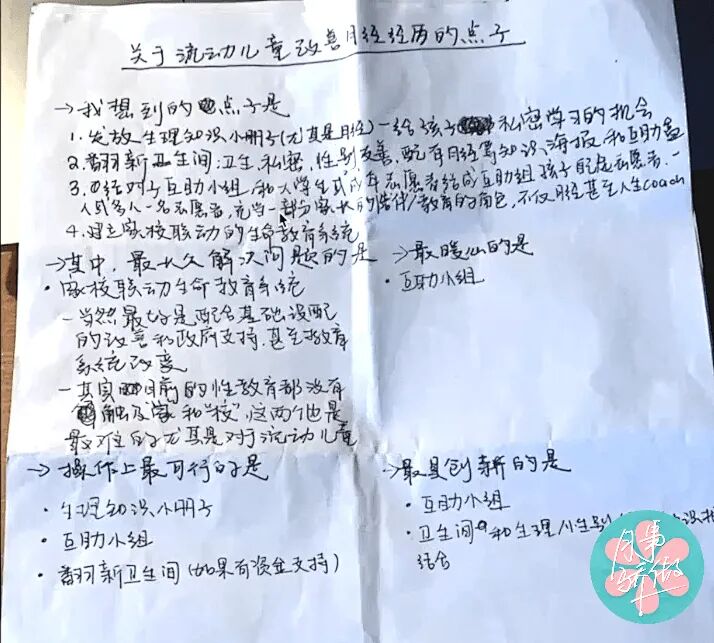 关于流动儿童改善月经经历的点子
→我想到的点子是
1. 发放生理知识小册子(尤其是月经)－给孩子私密学习的机会
2. 翻新卫生间：卫生，私密，性别友善，配有月经等知识海报和互助盒
3. 结对子互助小组，和大学生或成年志愿者结成互助组，孩子配志愿者，一
人或多人一名志愿者，充当一部分家长的陪伴/教育的角色，不仅月经甚至人生coach
4. 建立家校联动的生命教育系统
→其中，最长久解决问题的是
·家校联动生命教育系统
－当然最好是配合基础设配
的改善和政府支持，甚至教育
系统改变
－其实目前的性教育都没有
触及"家"和"校"，这两个也是
最难的尤其是对于流动儿童
→最暖心的是
·互助小组
→操作上最可行的是
·生理知识小册子
·互助小组
·翻新卫生间(如果有资金支持)
→最具创新的是
·互助小组
·卫生间和生理/性别
结合
月事骄傲